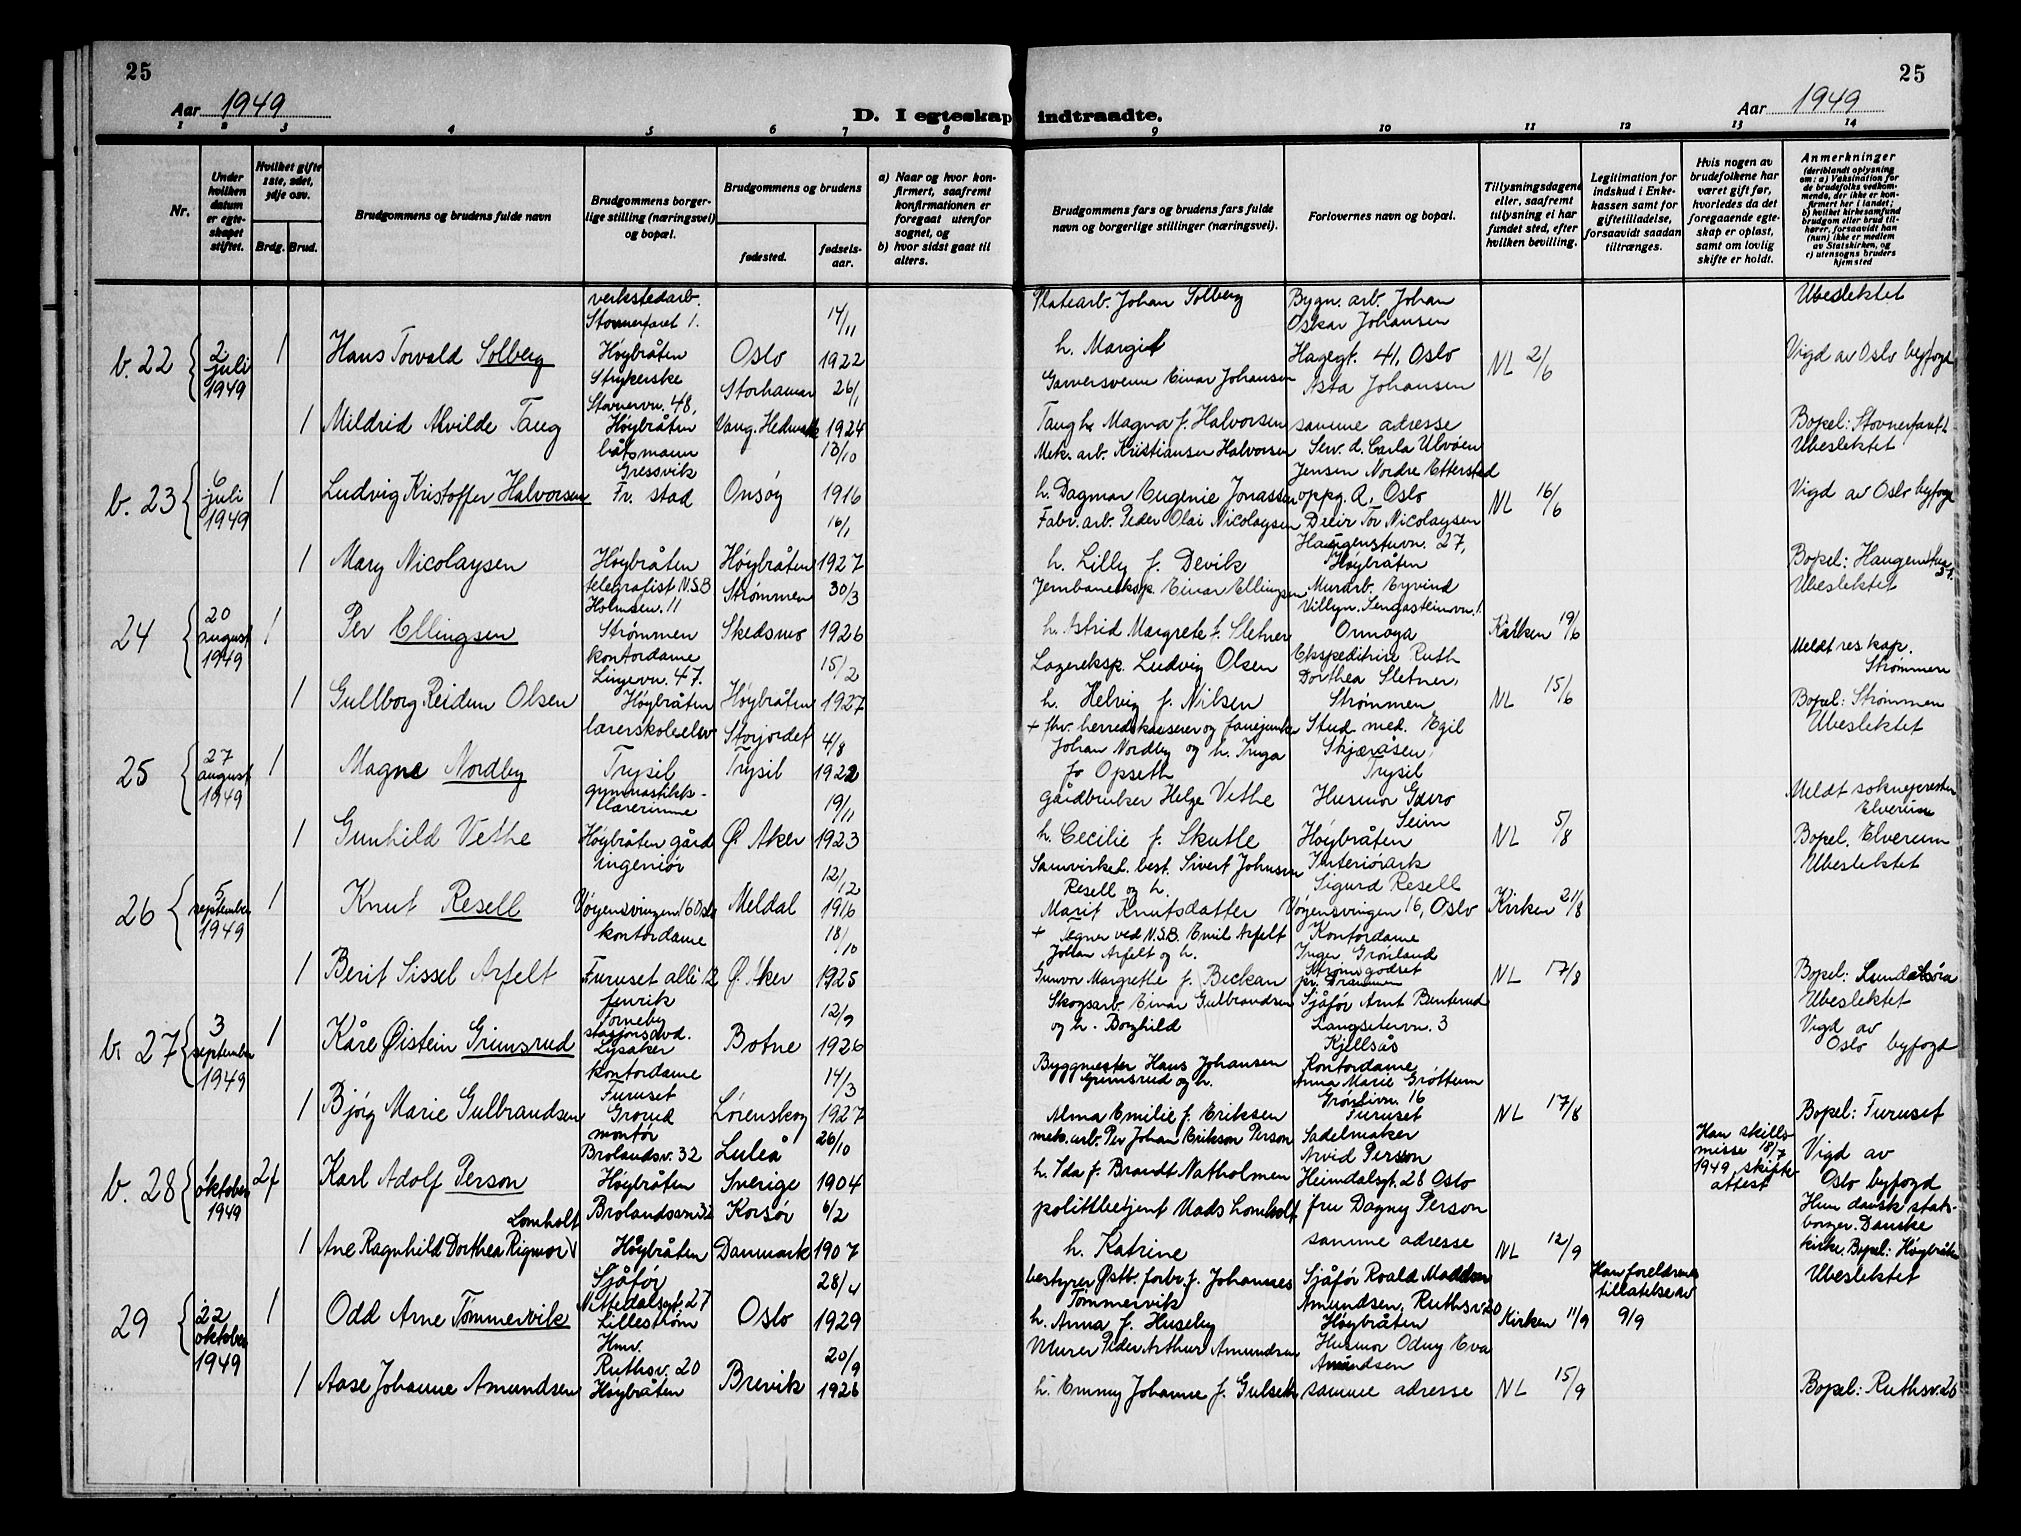 25
Aar 1949
D. I egteskap
1 2 3 4 5 6 7 8
Nr.
Under hvilken datum er egteskapet stiftet.
Hvilket gifte 1ste, 2det, 3dje osv.
Brdg. Brud.
Brudgommens og brudens fulde navn
Brudgommens borgerlige stilling (næringsvei) og bopæl.
Brudgommens og brudens
fødested.
fødselsaar.
a) Naar og hvor konfirmert, saafremt konfirmationen er foregaat utenfor sognet, og
b) hvor sidst gaat til alters.
verkstedarb.
Stovnerfaret 1.
14/11
b. 22 2 juli 1949 1 Hans Torvald Solberg Høybråten Oslo 1922
Strykerske
Stovnervn. 48,
Storhamar 26/1
1 Mildrid Alvilde Taug Høybråten Vang. Hedmark 1924
båtsmann
Gressvik
13/10
b. 23 6 juli 1949 1 Ludvig Kristoffer Halvorsen Fr. stad Onsøy 1916
16/1
1 Mary Nicolaysen Høybråten Høybråten 1927
telegrafist N.S.B
Holmsen. 11
Strømmen 30/3
24 20 august 1949 1 Per Ellingsen Strømmen Skedsmo 1926
kontordame
Lingevn. 47.
15/2
1 Gullborg Reidun Olsen Høybråten Høybråten 1927
lærerskoleelev Storjordet 4/8
25 27 august 1949 1 Magne Nordby Trysil Trysil 1922
gymnastikk-
lærerinne
19/11
1 Gunhild Vethe Høybråten gård Ø. Aker 1923
ingeniør
12/12
26 5 september 1949 1 Knut Resell Vøyensvingen 16 Oslo Meldal 1916
kontordame
18/10
1 Berit Sissel Arfelt Furuset allé 12 Ø. Aker 1925
fenrik
Torneby
stasjonsavd.
12/9
b. 27 3 september 1949 1 Kåre Øistein Grimsrud Lysaker Botne 1926
kontordame
Furuset
14/3
1 Bjørg Marie Gulbrandsen Grorud Lørenskog 1927
montør
Brolandsv. 32
Luleå 26/10
b. 28 1 oktober 1949 2f Karl Adolf Person Høybråten Sverige 1904
Brolandsvn 32 Korsør 6/2
Lomholt
1 Ane Ragnhild Dorthea Rigmor Høybråten Danmark 1907
Sjåfør
Nittedalsgt. 27
28/4
29 22 oktober 1949 1 Odd Arne Tømmervik Lillestrøm Oslo 1929
Hmv.
Ruthsv. 20
20/9
1 Aase Johanne Amundsen Høybråten Brevik 1926
25
Aar 1949
indtraadte.
9 10 11 12 13 14
Brudgommens fars og brudens fars fulde navn og borgerlige stillinger (næringsvei).
Forlovernes navn og bopæl.
Tillysningsdagene eller, saafremt tillysning ei har fundet sted, efter hvilken bevilling.
Legitimation for indskud i Enkekassen samt for giftetilladelse, forsaavidt saadan tiltrænges.
Hvis nogen av brudefolkene har været gift før, hvorledes da det foregaaende egteskap er opløst, samt om lovlig skifte er holdt.
Anmerkninger (deriblandt oplysning om: a) Vaksination for de brudefolks vedkommende, der ikke er konfirmert her i landet; b) hvilket kirkesamfund brudgom eller brud tilhører, forsaavidt han (hun) ikke er medlem av Statskirken, og c) utensogns bruders hjemsted
Platearb. Johan Solberg Bygn. arb. Johan Ubeslektet
Oskar Johansen
h. Margit Hagegt. 41, Oslo NL 2/6 Vigd av Oslo byfogd
Garversvenn Einar Johansen Asta Johansen
Taug h. Magna f. Halvorsen samme adresse Bopel: Stovnerfaret 1
Mek. arb. Kristiansen Halvorsen Serv. d. Carla Ulvøen Ubeslektet
Jensen Nordre Etterstad
h. Dagmar Eugenie Jonassen oppg. A, Oslo NL 16/6 Vigd av Oslo byfogd
Fabr. arb. Peder Olai Nicolaysen Dreier Tor Nicolaysen
Haugenstuvn. 27,
h. Lilly f. Devik Høybråten Bopel: Haugenstua
Jernbaneeksp. Einar Ellingsen Murarb. Eyvind Ubeslektet
h. Astrid Margrete f. Sletner Ormøya Kirken 19/6
Meldt res. kap. Strømmen
Lagereksp. Ludvig Olsen Ekspeditrise Ruth
Dorthea Sletner,
h. Helvig f. Nilsen Strømmen NL 15/6 Bopel: Strømmen
+ fhv. herredskasserer og fanejunker Stud. med. Egil Ubeslektet
Johan Nordby og h. Inga Skjæråsen,
f. Opseth Trysil
Meldt soknepresten Elverum
gårdbruker Helge Vethe Husmor Guro
Seim
h. Cecilie f. Skutle Høybråten NL 5/8 Bopel. Elverum
Samvirkel. best. Sivert Johnsen Interiørark Ubeslektet
Resell og h. Sigurd Resell
Marit Knutsdatter Vøyensvingen 16, Oslo Kirken 21/8
+ Tegner ved N.S.B. Emil Arfelt Kontordame
Johan Arfelt og h. Inger Grønland
Strømsgodset
Gunvor Margrethe f. Beckan pr. Drammen NL 17/8 Bopel: Sunndalsøra
Skogsarb. Einar Gulbrandsen Sjåfør Arnt Benterud Ubeslektet
og h. Borghild Langsetervn. 3 Vigd av
Kjellsås Oslo byfogd
Byggmester Hans Johansen Kontordame
Grimsrud og h. Anna Marie Grøttum
Grønlivn. 16
Alma Emilie f. Eriksen Furuset NL 17/8 Bopel: Furuset
mek. arb. Per Johan Erikson Person Sadelmaker
Arvid Person
Han skilsmisse 18/7 1949, skifteattest
Vigd av
h. Ida f. Brandt Natholmen Heimdalsgt. 28 Oslo Oslo byfogd
politibetjent Mads Lomholt fru Dagny Person Hun dansk statsborger. Danske
h. Katrine samme adresse NL 12/9 kirke. Bopel: Høybråten
bestyrer Østb. forbr.f. Johannes Sjåfør Roald Madsen Han foreldrenes Ubeslektet
Tømmervik Amundsen, Ruthsv. 20 tillatelse av
h. Anna f. Huseby Høybråten Kirken 11/9 9/9
Murer Peder Arthur Amundsen Husmor Odny Eva
Amundsen
h. Emmy Johanne f. Gulseth samme adresse NL 15/9 Bopel: Ruthsv. 20